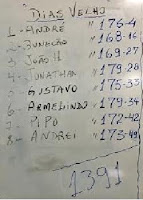 DIAS VELHJ
1-ANDRÉ " 176-4
2-BUNAÇÃO " 168-16
3 JOÃO H " 169-27
4-JONATHAN " 179-28
5-GUSTAVO " 175-33
6-ARMELINDO " 179-34
7-PIPO " 172-42
8-ANDREI " 173-49
1391